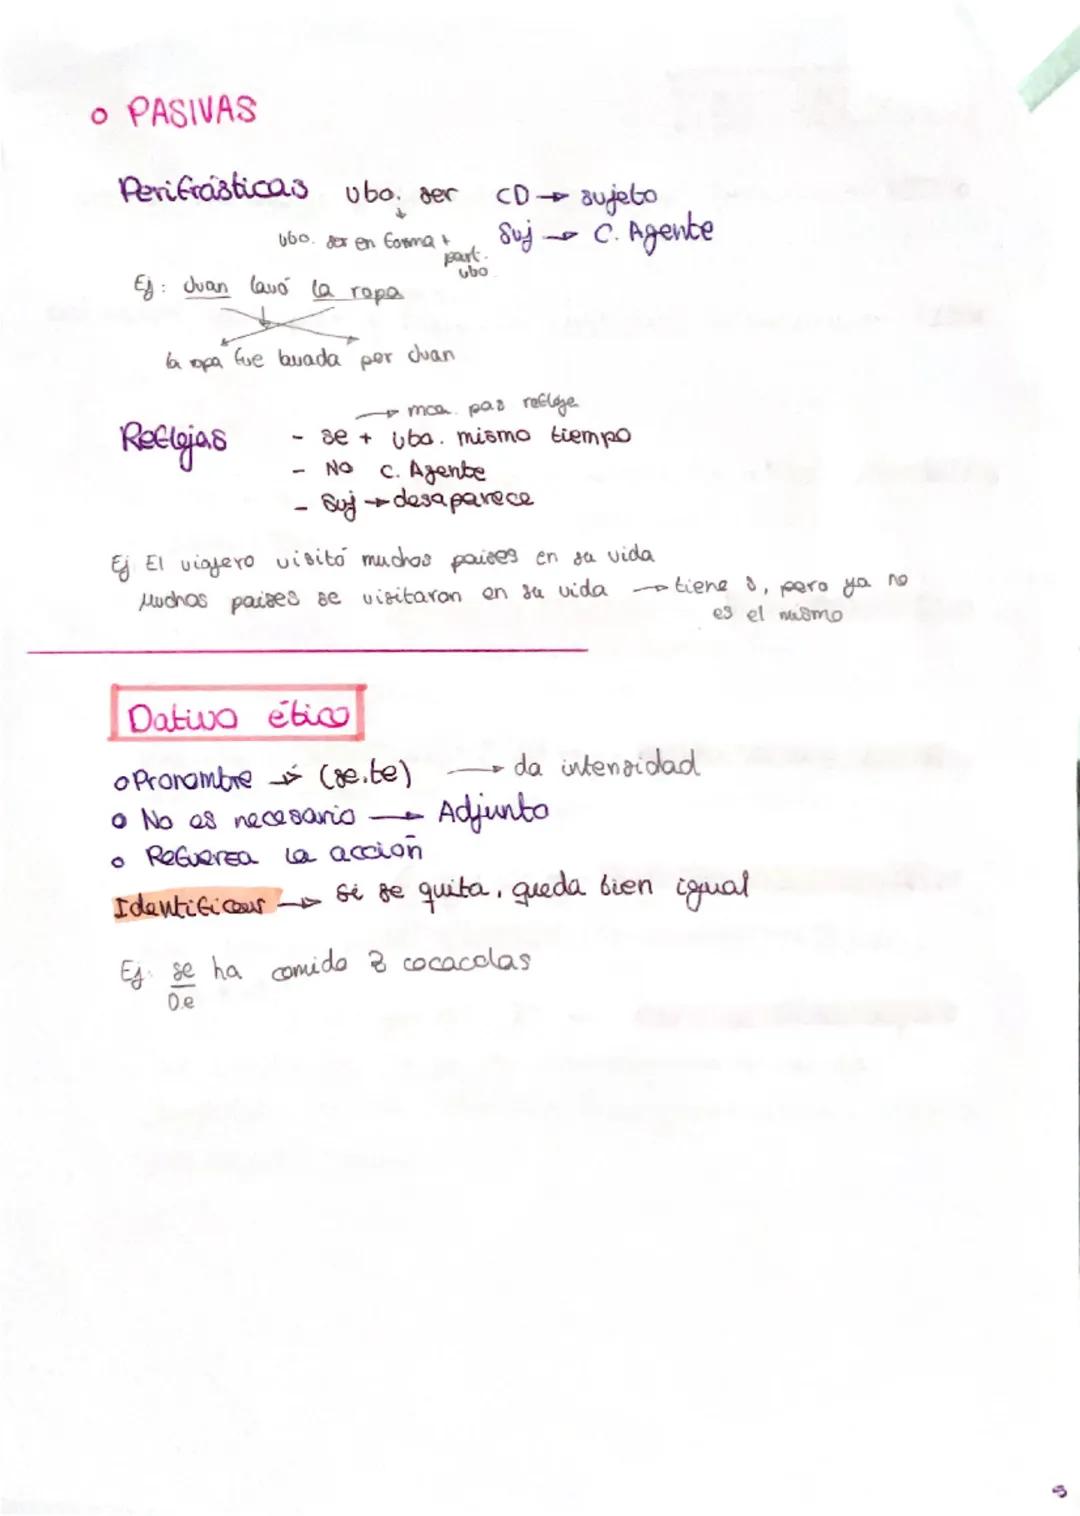 o PASIVAS
Perifrásticas vbo. ser CD → sujeto
vbo. ser en forma + part. vbo Suj → C. Agente
Ej: Juan lavó la ropa
la ropa fue lavada por Juan
→ mca. pas refleje
Reflejas - se + vbo. mismo tiempo
- No C. Agente
- Suj → desaparece
Ej El viajero visitó muchos paises en su vida
Muchos paises se visitaron en su vida → tiene s, pero ya no
es el mismo
Dativo ético
o Pronombre → (se, te) → da intensidad
o No es necesario → Adjunto
o Refuerza la acción
Identificar → Si se quita, queda bien igual
Ej: se ha comido 2 cocacolas
D.e
5